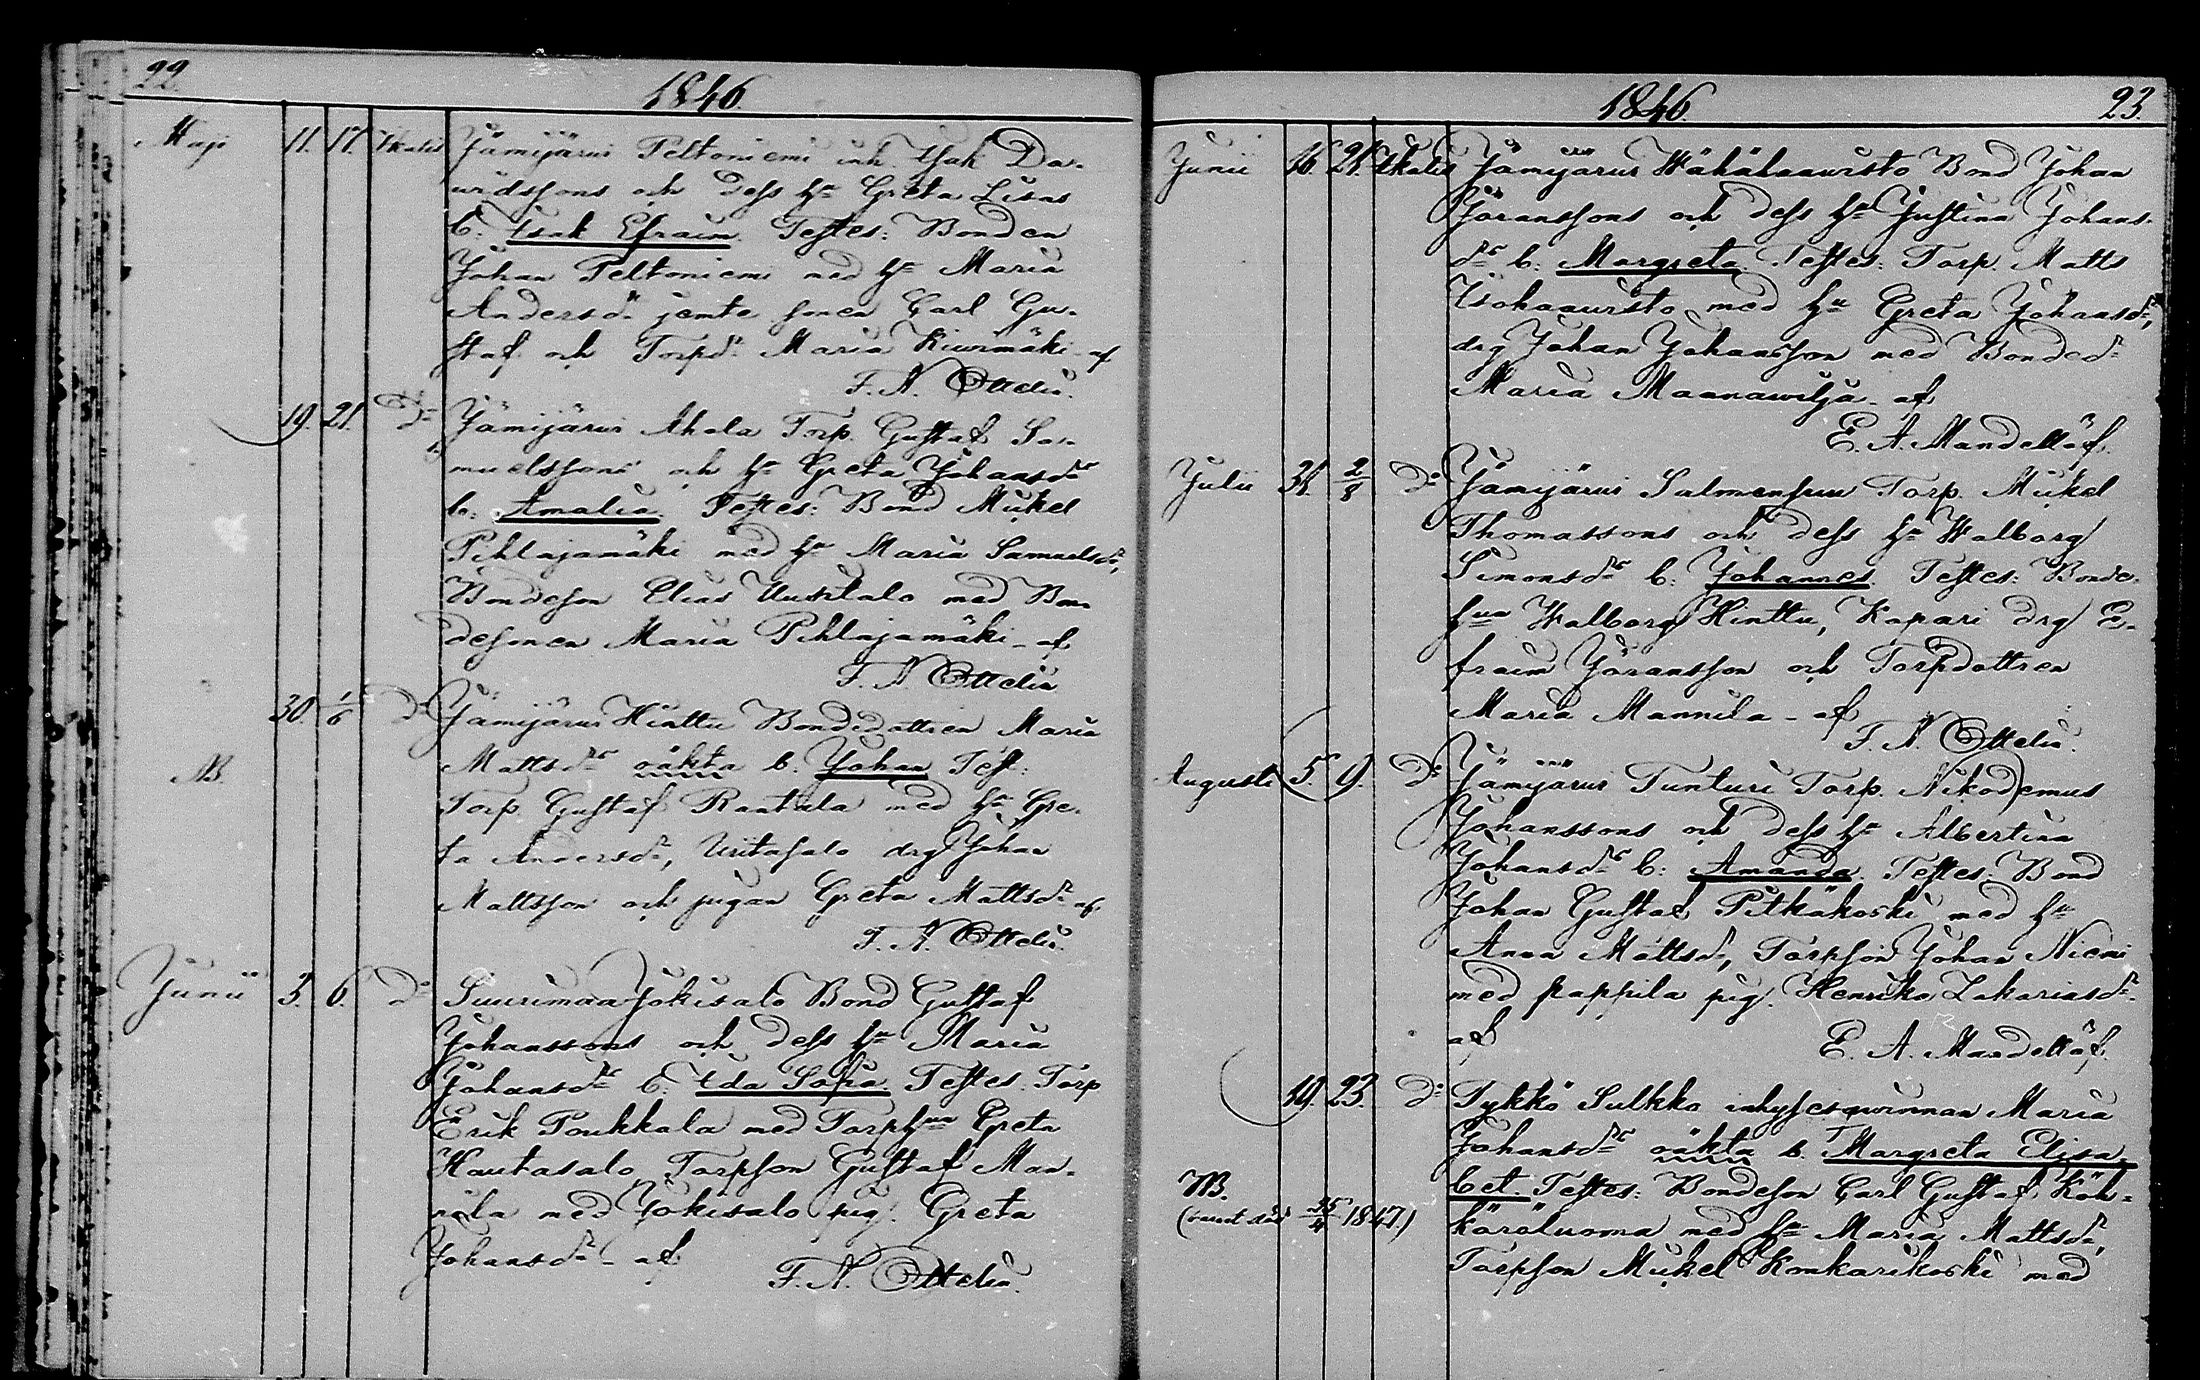 22.
1846.
Maji 11. 17. Ikalis Jämijärvi Peltoniemi inh. Isak Da-
vidssons och dess hu Greta Lisas
b: Isak Efraim. Testes: Bonden
Johan Peltoniemi med hu Maria
Andersdr jemte sonen Carl Gu-
staf och Torpdr Maria Kiwimäki - af
F. N. Ottelin.
19. 21. Do Jämijärvi Ahola Torp. Gustaf Sa-
muelssons och hu Greta Johansdrs
b: Amalia. Testes: Bond Mickel
Pihlajamäki med hu Maria Samuelsdr,
Bondeson Elias Uusitalo med Bon-
desonen Maria Pihlajamäki - af
F. N. Ottelin
30 1/6 Do Jämijärvi Hinttu Bondedottren Maria
NB. Mattsdrs oäkta b. Johan Test:
Torp. Gustaf Rantala med hu Gre-
ta Andersdr, Uitasalo drg Johan
Mattsson och pigan Greta Mattsdr af
F. N. Ottelin.
Junii 3. 6. Do Suurimaa Jokisalo Bond Gustaf
Johanssons och dess hu Maria
Johansdrs b: Ida Sofia Testes. Torp
Erik Poukkala med Torphun Greta
Hautasalo, Torpson Gustaf Man-
nila med Jokisalo pig. Greta
Johansdr - af
F. N. Ottelin.
1846.
23.
Junii 16. 21. Ikalis Jämijärvi Wähähaawisto Bond Johan
Jöranssons och dess hu Justina Johans-
drs b: Margreta. Testes: Torp. Matts
Isohaawisto med hu Greta Johansdr,
drg Johan Johansson med Bondedr
Maria Maanawilja - af
E. A. Mandellöf.
Julii 31. 2/8 Do Jämijärvi Salmensuu Torp. Mickel
Thomassons och dess hu Walborg
Simonsdrs b: Johannes. Testes: Bonde-
hun Walborg Hinttu, Kapari drg E-
fraim Jöransson och Torpdottren
Maria Mannila - af
F. N. Ottelin.
Augusti 5. 9. Do Jämijärvi Tunturi Torp. Nikodemus
Johanssons och dess hu Albertina
Johansdrs b: Amanda. Testes: Bond
Johan Gustaf Pitkäkoski med hu
Anna Mattsdr, Torpson Johan Niemi
med pappila pig. Henrika Zakariasdr.
af
E. A. Mandellöf.
19. 23. Do Tykkö Sulkko inhysesqwinnan Maria
Johansdrs oäkta b. Margreta Elisa-
NB. bet Testes: Bondeson Carl Gustaf Köh-
1847) köröluoma med hu Maria Mattsdr,
Torpson Mickel Konkarikoski med